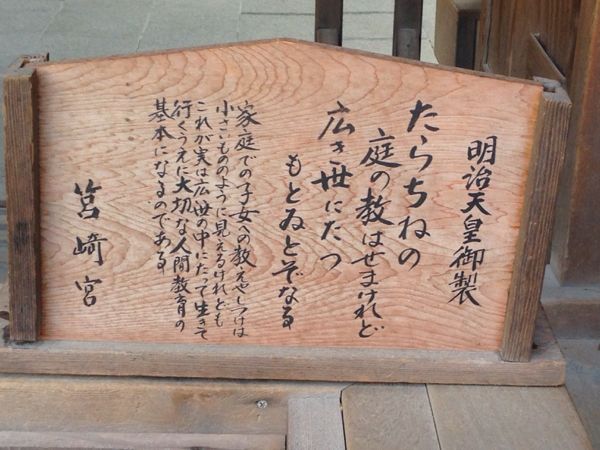 明治天皇御製
たらちねの
庭の教はせまけれど
広き世にたつ
もとゐとぞなる
家庭での子女への教えやしつけは
小さいもののように見えるけれども
これが実は広い世の中にたって生きて
行くうえに大切な人間教育の
基本になるのである
筥崎宮